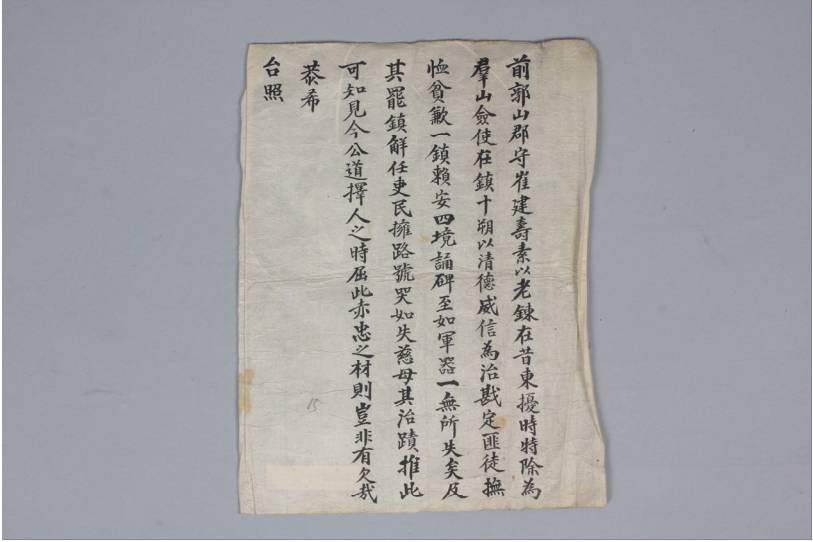 前郭山郡守崔建壽素以老鍊在昔東擾時特除為
羣山僉使在鎮十朔以清德威信為治戡定匪徒撫
恤貧歉一鎮賴安四境誦碑至如軍器一無所失矣及
其罷鎮觧任吏民擁路號哭如失慈母其治蹟推此
可知見今公道擇人之時屈此亦忠之材則豈非有欠哉
恭希
台照
15